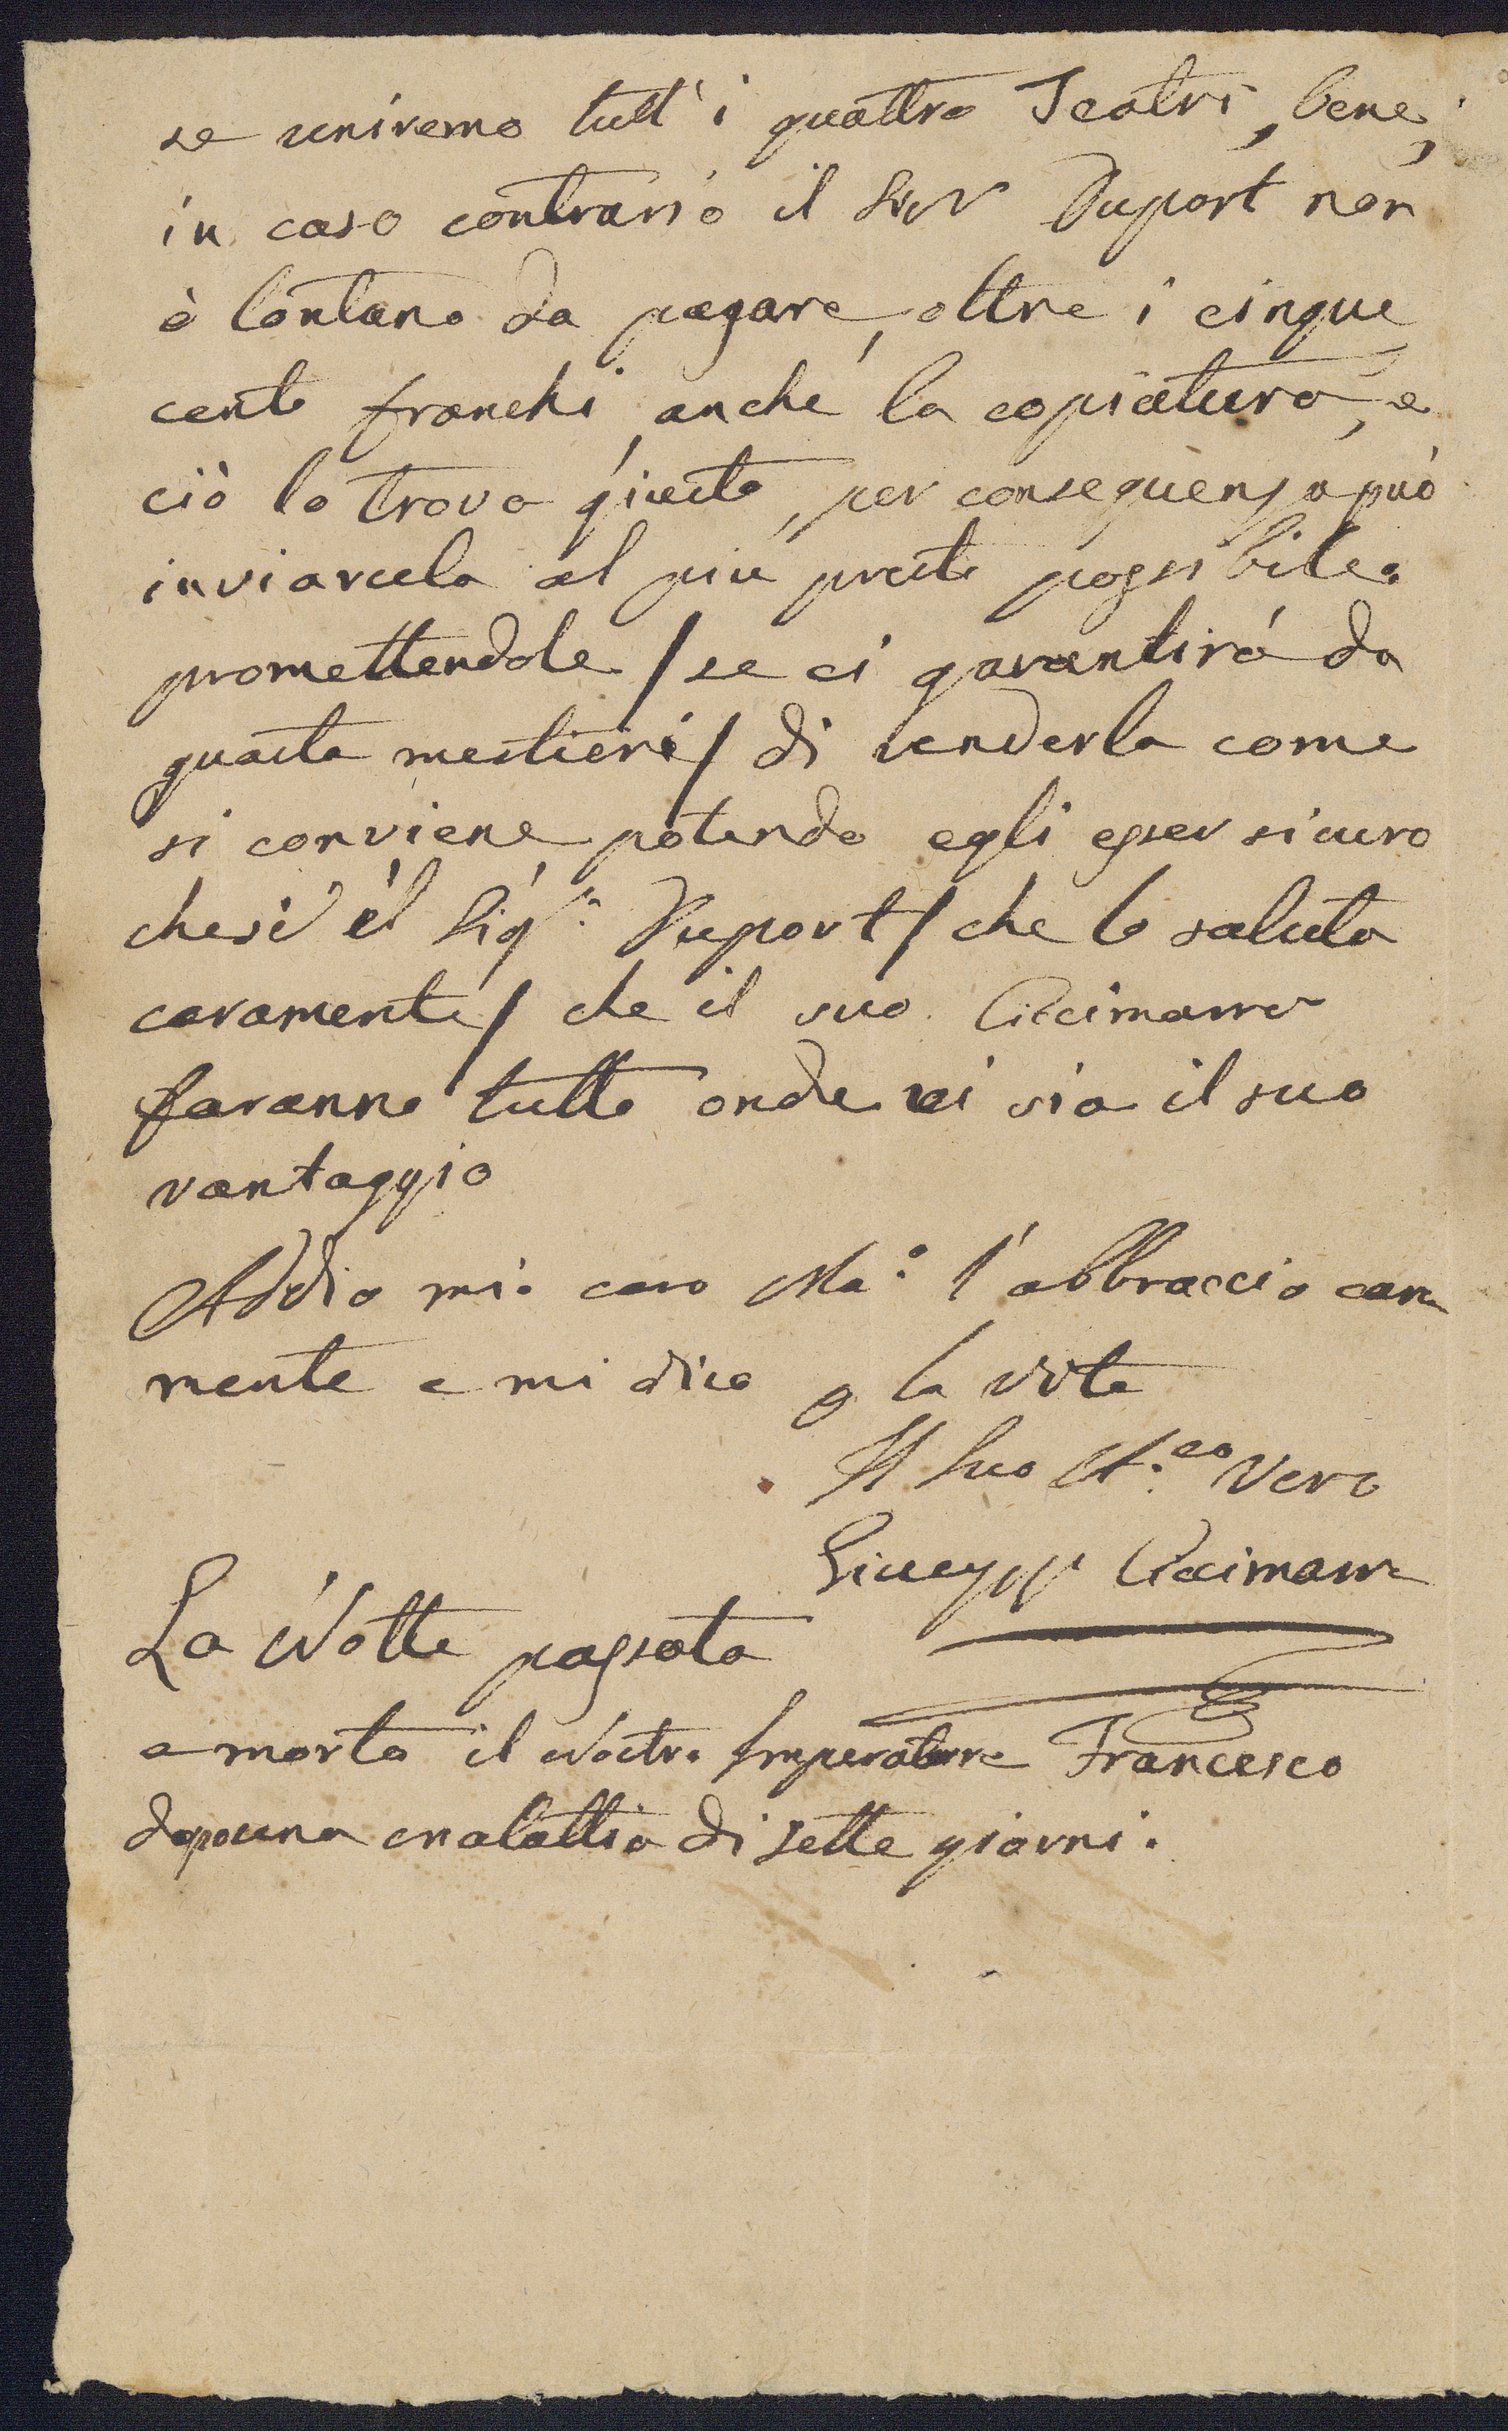 se uniremo tutt'i quattro Teatri, bene,
in caso contrario il Sigr Duport non
è lontano da pagare, oltre i cinque
cento franchi, anche la copiatura, e
ciò lo trovo giusto, per conseguenza può
inviarcela al più presto possibile.
promettendole / se ci garantirà da
guasta mestieri / di venderla come
si conviene, potendo egli esser sicuro
che sì il Sigr. Duport / che lo saluta
caramente / che il suo Ciccimarra
faranno tutto onde vi sia il suo
vantaggio
Addio mio caro Mao. l'abbraccio cara
mente e mi dico la vita
Il Suo A.co Vero
Giuseppe Ciccimarra
La Notte passata
e morto il Nostro Imperatore Francesco
dopo una malattia di sette giorni.